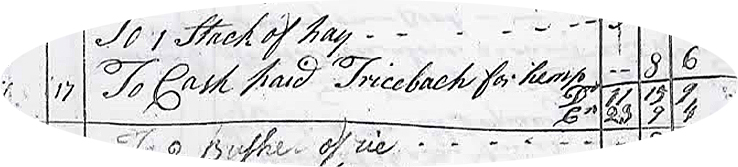 To 1 Stack of hay - - - - - -
17 To Cash paid Tricebach for hemp -- 8 6
Dr 11 15 9
Cr 23 9 4
To 2 Bushe of rie - - - - -